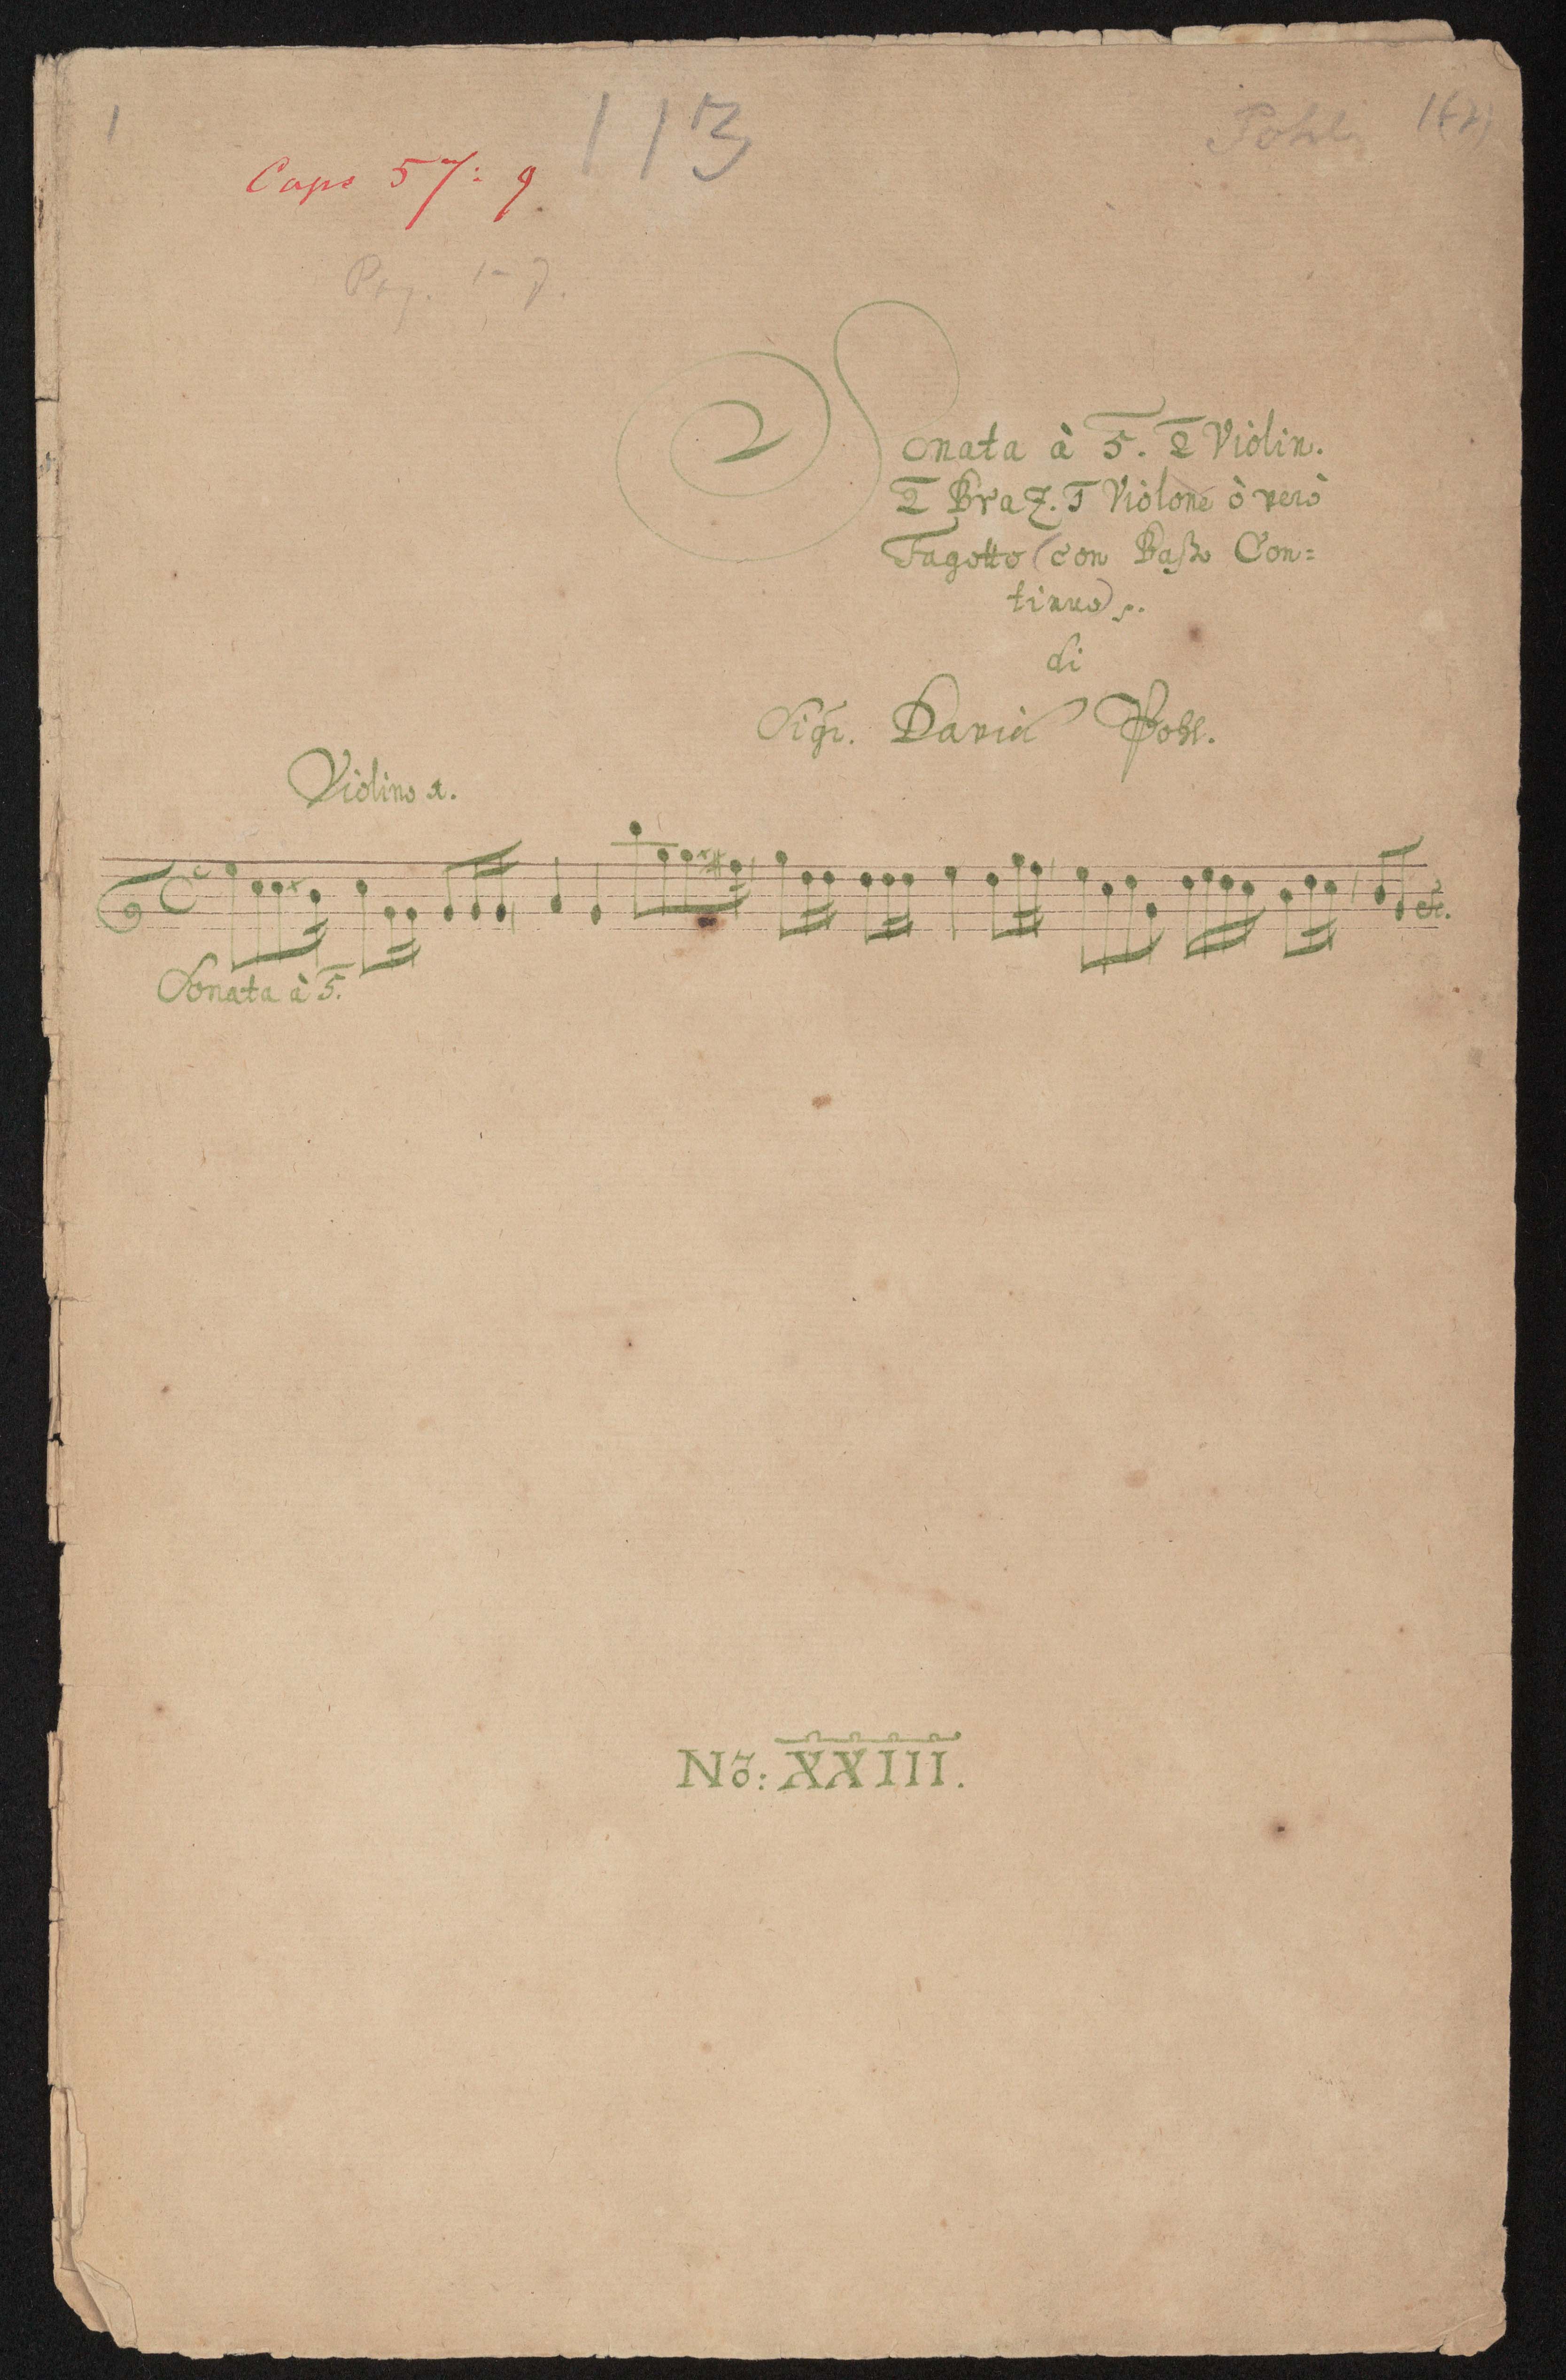 1
113
Pohl
Caps 57: 9
Pag. 1-7.
Sonata à 5. 2 Violin.
2 Braz. 1 Violone ò verò
Fagotto (con Baßo Con=
tinuo).
di
Sigr. David Pohl.
Violino 1.
Sonata à 5.
etc.
No: XXIII.